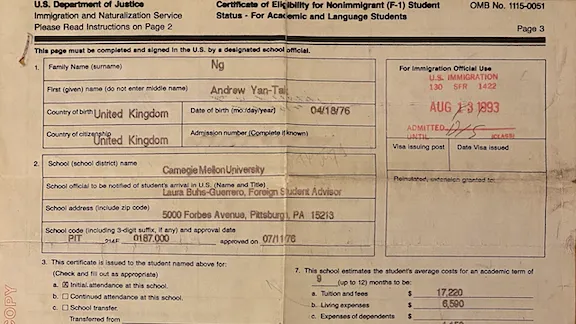 U.S. Department of Justice
Immigration and Naturalization Service
Please Read Instructions on Page 2
Certificate of Eligibility for Nonimmigrant (F-1) Student
Status - For Academic and Language Students
OMB No. 1115-0051
Page 3
This page must be completed and signed in the U.S. by a designated school official.
1. Family Name (surname)
Ng
First (given) name (do not enter middle name)
Andrew Yan-Tak
Country of birth United Kingdom
Date of birth (mo./day/year) 04/18/76
Country of citizenship United Kingdom
Admission number (Complete if known)
For Immigration Official Use
U.S. IMMIGRATION
130 SFR 1422
AUG 13 1993
ADMITTED D/S
UNTIL (CLASS)
Visa issuing post
Date Visa issued
Reinstated, extension granted to:
2. School (school district) name
Carnegie Mellon University
School official to be notified of student's arrival in U.S. (Name and Title)
Laura Buhs-Guerrero, Foreign Student Advisor
School address (include zip code)
5000 Forbes Avenue, Pittsburgh, PA 15213
School code (including 3-digit suffix, if any) and approval date
PIT 214F 0187.000 approved on 07/11/76
3. This certificate is issued to the student named above for:
(Check and fill out as appropriate)
a. ☒ Initial attendance at this school.
b. ☐ Continued attendance at this school.
c. ☐ School transfer.
Transferred from
7. This school estimates the student's average costs for an academic term of
9 (up to 12) months to be:
a. Tuition and fees $ 17,220
b. Living expenses $ 6,590
c. Expenses of dependents $
COPY